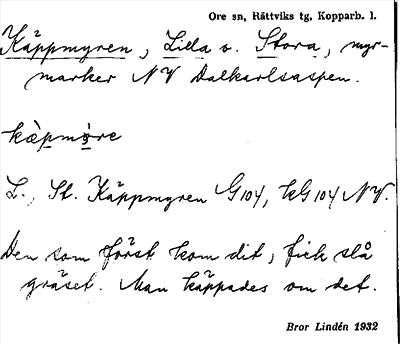 Ore sn, Rättviks tg, Kopparb. l.
Käppmyren, Lilla o. Stora, myr-
marker NV Dalkarlsaspen.
kæ̀pmỳre
L., St. Käppmyren G104, kG104 NV.
Den som först kom dit, fick slå
gräset. Man käppades om det.
Bror Lindén 1932